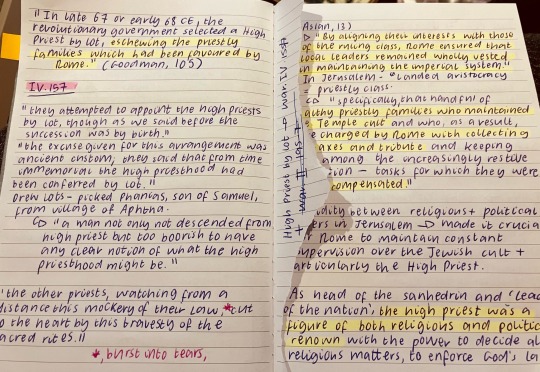 "In late 67 or early 68 CE, the
revolutionary government selected a High
Priest by lot, eschewing the priestly
families which had been favoured by
Rome." (Goodman, 105)
IV.157
"they attempted to appoint the high priests
by lot, though as we said before the
succession was by birth."
"the excuse given for this arrangement was
ancient custom, they said that from time
immemorial the high priesthood had
been conferred by lot."
Drew lots - picked Phanias, son of Samuel,
from village of Aphtha.
↳ "a man not only not descended from
high priest but too boorish to have
any clear notion of what the high
priesthood might be."
"the other priests, watching from a
distance this mockery of their law, *cut
to the heart by this travesty of the
sacred rites."
*, burst into tears,
High Priest by lot → War.IV 157
Aslan, 13)
"By aligning their interests with those
of the ruling class, Rome ensured that
local leaders remained wholly vested
in maintaining the imperial system."
In Jerusalem - "landed aristocracy
priestly class.
↳ "specifically, that handful of
althy priestly families who maintained
Temple cult and who, as a result,
e charged by Rome with collecting
axes and tribute and keeping
among the increasingly restive
ation - tasks for which they were
compensated."
idity between religious + political
ers in Jerusalem → made it crucia
r Rome to maintain constant
upervision over the Jewish cult +
articularly the High Priest.
As head of the sanhedrin and 'lead
of the nation', the high priest was a
figure of both religious and politic
renown with the power to decide al
religious matters, to enforce God's la